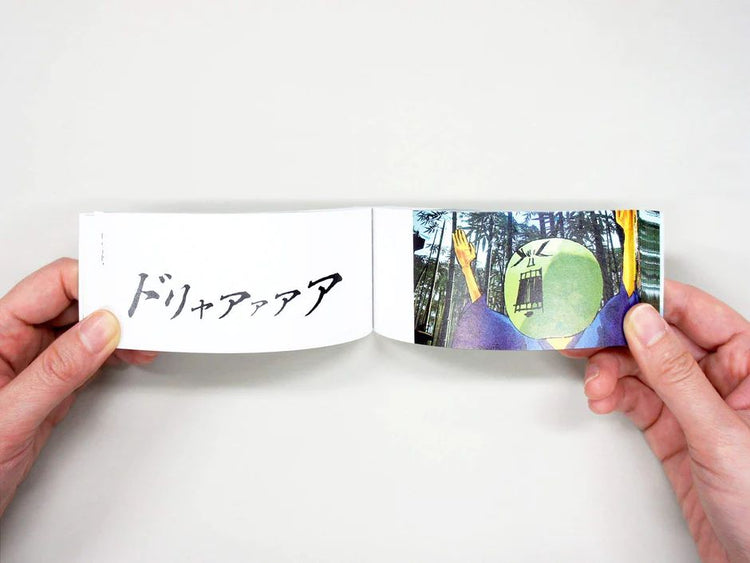 ドリャアァアア